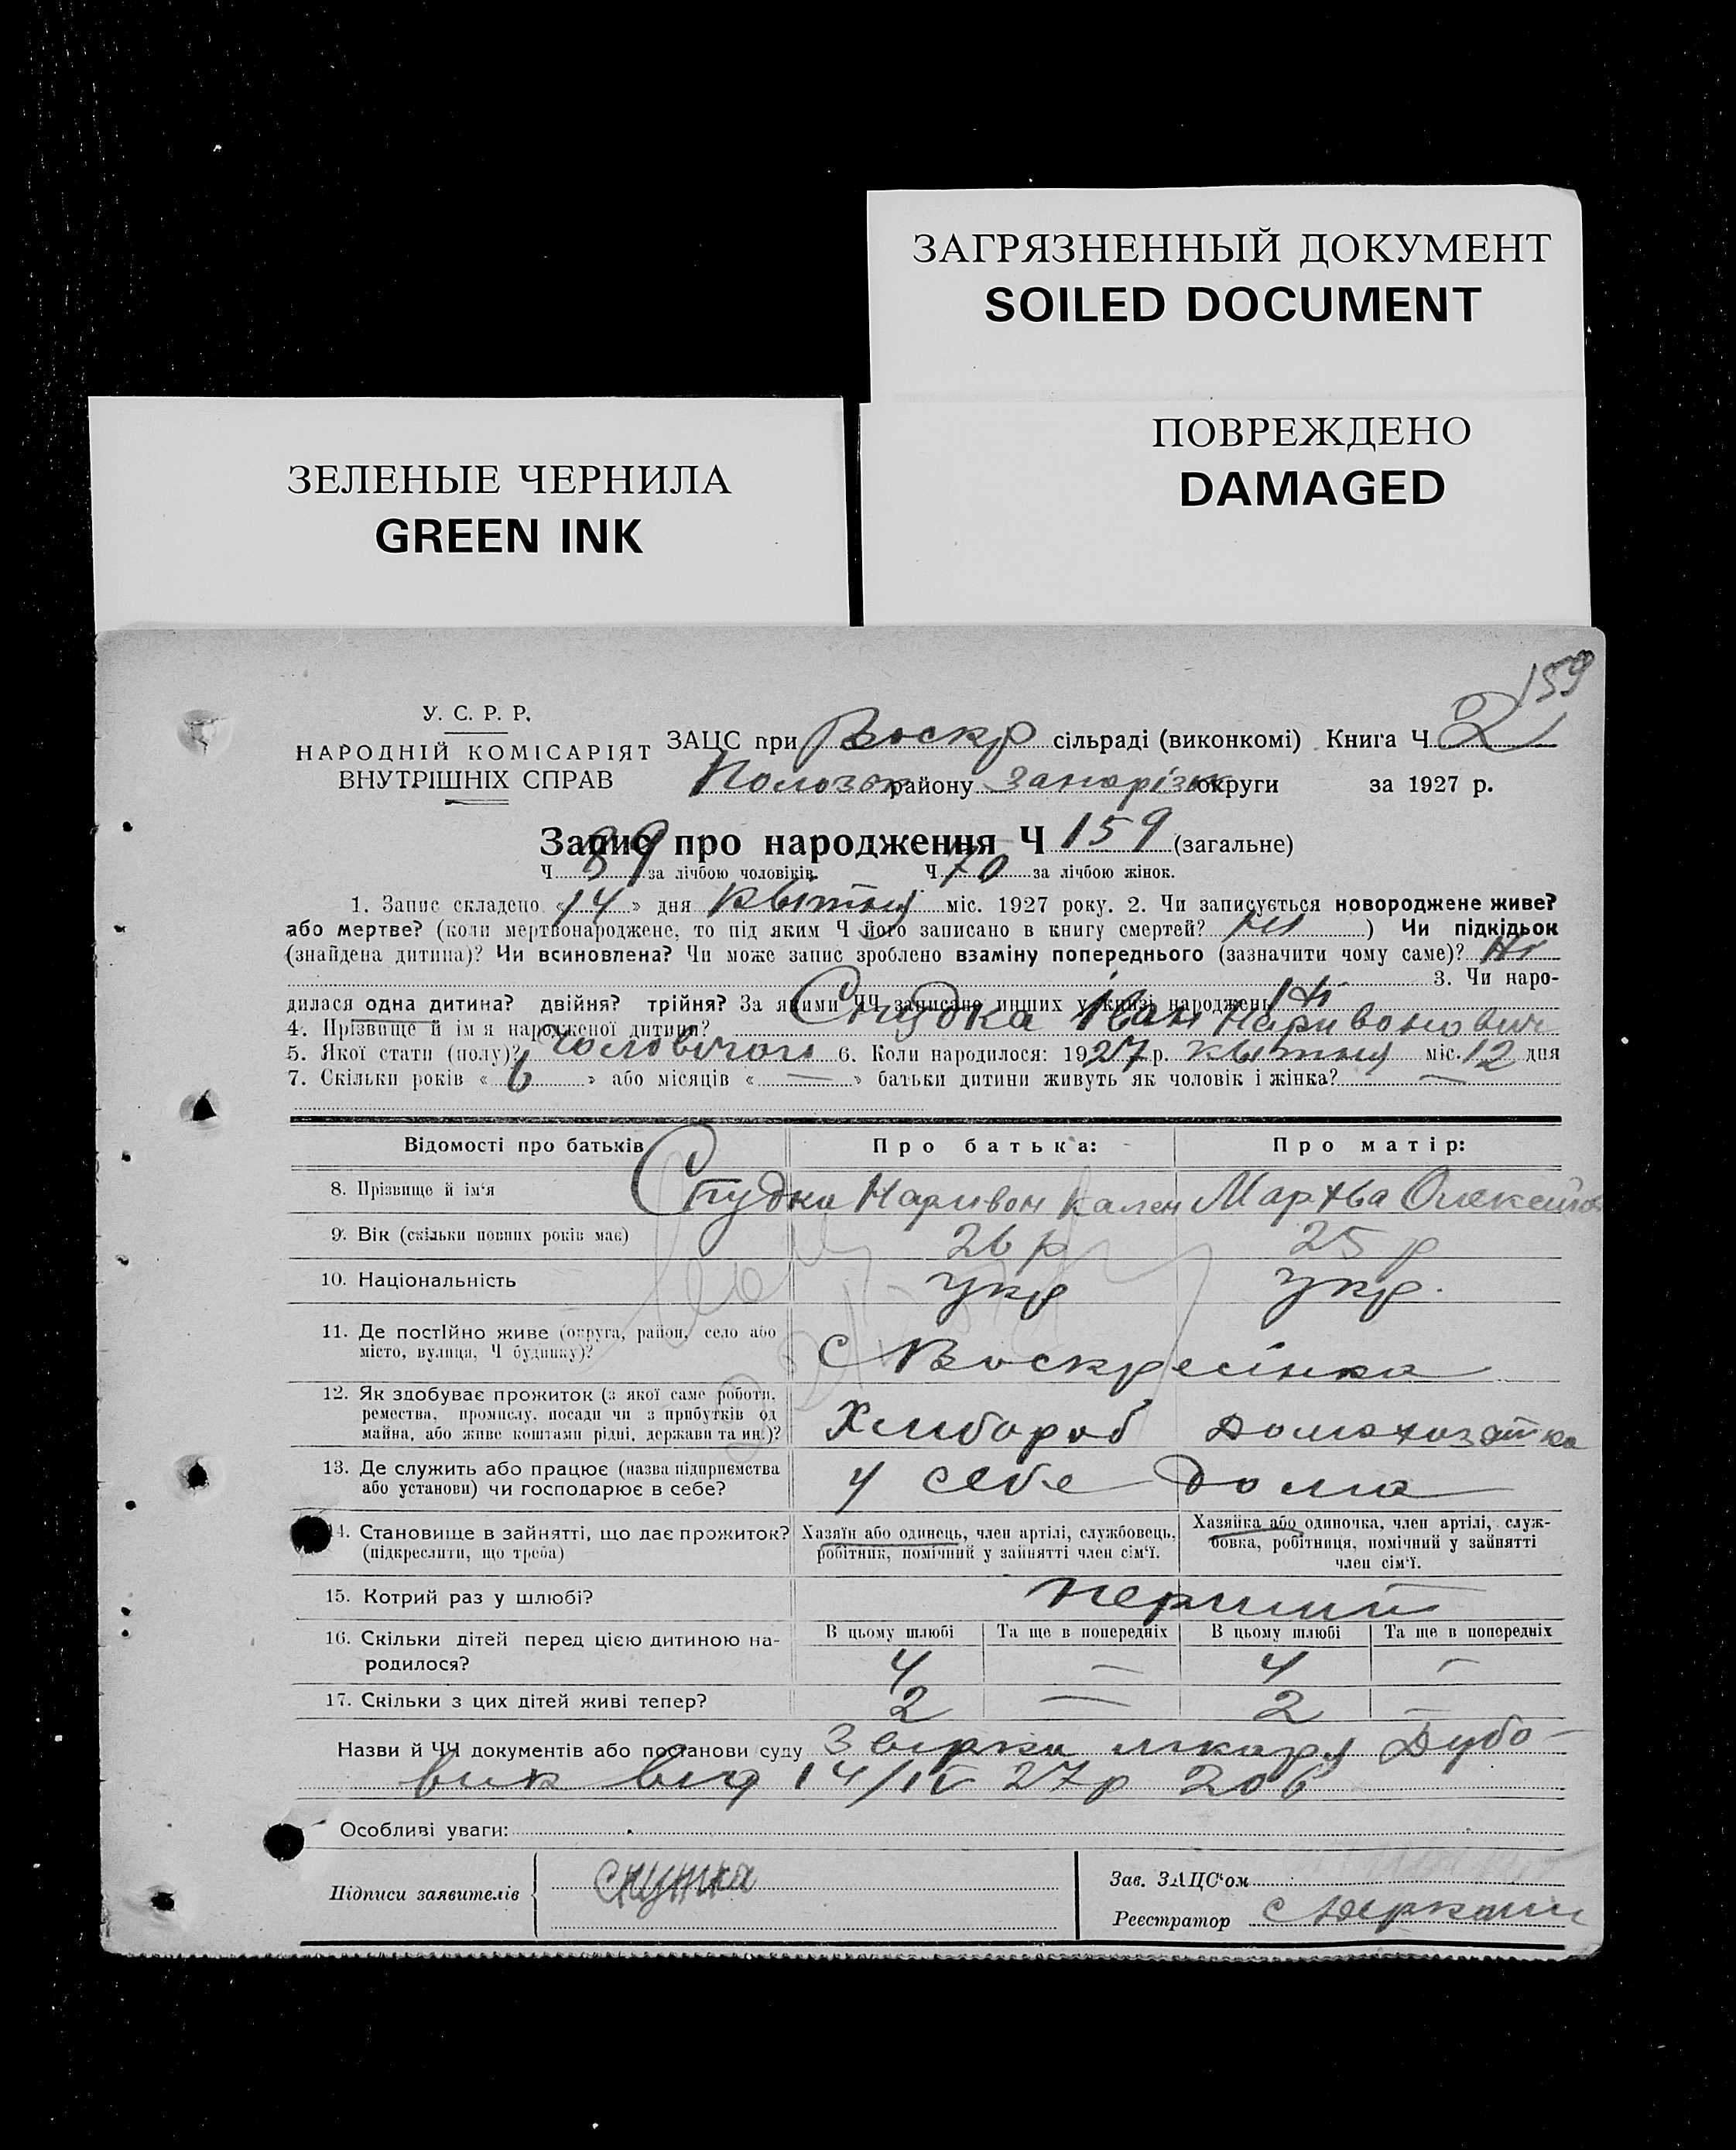 ЗАГРЯЗНЕННЫЙ ДОКУМЕНТ
SOILED DOCUMENT
ПОВРЕЖДЕНО
DAMAGED
ЗЕЛЕНЫЕ ЧЕРНИЛА
GREEN INK
159
У. С. Р. Р.
НАРОДНІЙ КОМІСАРІЯТ
ВНУТРІШНІХ СПРАВ
ЗАЦС при Воскр сільраді (виконкомі) Книга Ч 2
Пологзьк району Запорізьк округи за 1927 р.
Запис про народження Ч 159 (загальне)
Ч 89 за лічбою чоловіків. Ч 70 за лічбою жінок.
1. Запис складено «14» дня квітня міс. 1927 року. 2. Чи записується новороджене живе?
або мертве? (коли мертвонароджене, то під яким Ч його записано в книгу смертей? ) Чи підкідьок
(знайдена дитина)? Чи всиновлена? Чи може запис зроблено взаміну попереднього (зазначити чому саме)? Ні
3. Чи наро-
дилася одна дитина? двійня? трійня? За якими ЧЧ записано инших у книзі народжень? Ні
4. Прізвище й ім'я народженої дитини? Спудка Іван Наривонович
5. Якої стати (полу)? чоловічого 6. Коли народилося: 1927 р. квітня міс. 12 дня
7. Скільки років «6» або місяців « — » батьки дитини живуть як чоловік і жінка? —
Відомості про батьків Про батька: Про матір:
8. Прізвище й ім'я Спудка Наривон Кален Мархва Олексійов
9. Вік (скільки повних років має) 26 р 25 р
10. Національність укр укр.
11. Де постійно живе (округа, район, село або
місто, вулиця, Ч будинку)? С Воскресінка
12. Як здобуває прожиток (з якої саме роботи,
ремества, промислу, посади чи з прибутків од
майна, або живе коштами рідні, держави та ин.)? Хлибороб Домахозяйка
13. Де служить або працює (назва підприємства
або установи) чи господарює в себе? У себе Дома
14. Становище в зайнятті, що дає прожиток?
(підкреслити, що треба)
Хазяїн або одинець, член артілі, службовець,
робітник, помічний у зайнятті член сім'ї.
Хазяйка або одиночка, член артілі, служ-
бовка, робітниця, помічний у зайнятті
член сім'ї.
15. Котрий раз у шлюбі? перший
16. Скільки дітей перед цією дитиною на-
родилося?
В цьому шлюбі Та ще в попередніх В цьому шлюбі Та ще в попередніх
4 — 4 —
17. Скільки з цих дітей живі тепер? 2 — 2 —
Назви й ЧЧ документів або постанови суду Звірка лікару Дубо-
вик від 14/IV 27р 206
Особливі уваги:
Підписи заявителів спутка
Зав. ЗАЦС'ом
Реєстратор